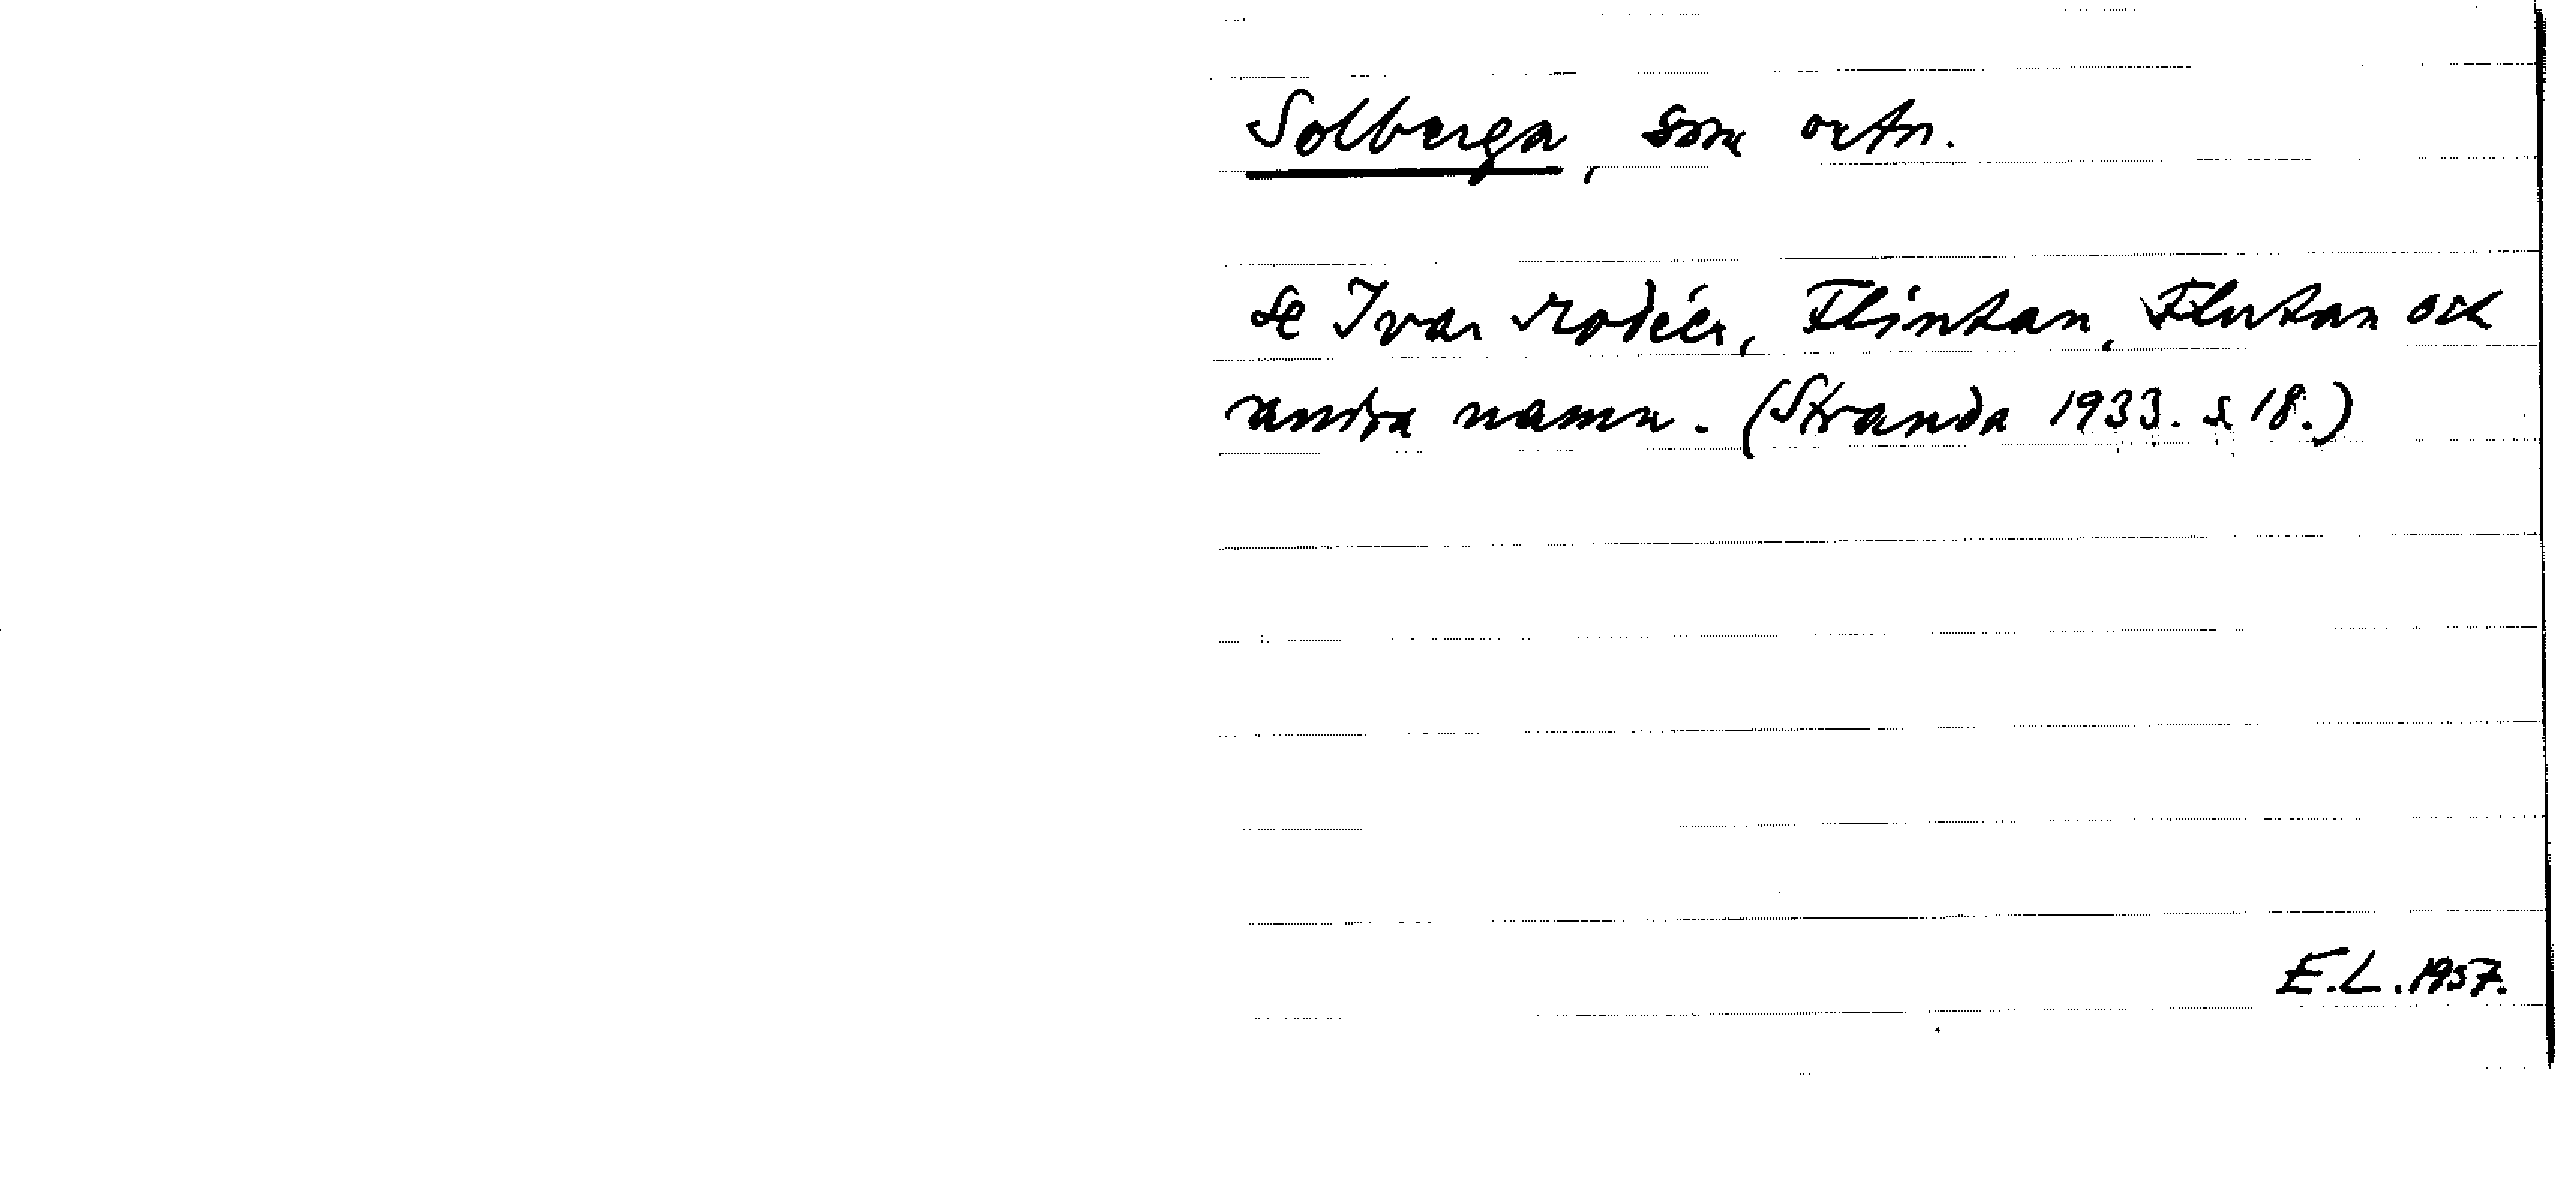 Solberga, som ortn.
se Ivar Modéer, Flintan, Flutan och
andra namn. (Stranda 1933. s. 18.)
E.L. 1957.